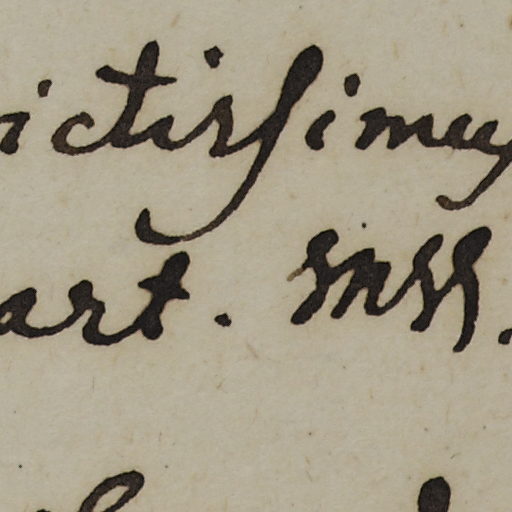 ictissimus
art. MSS.